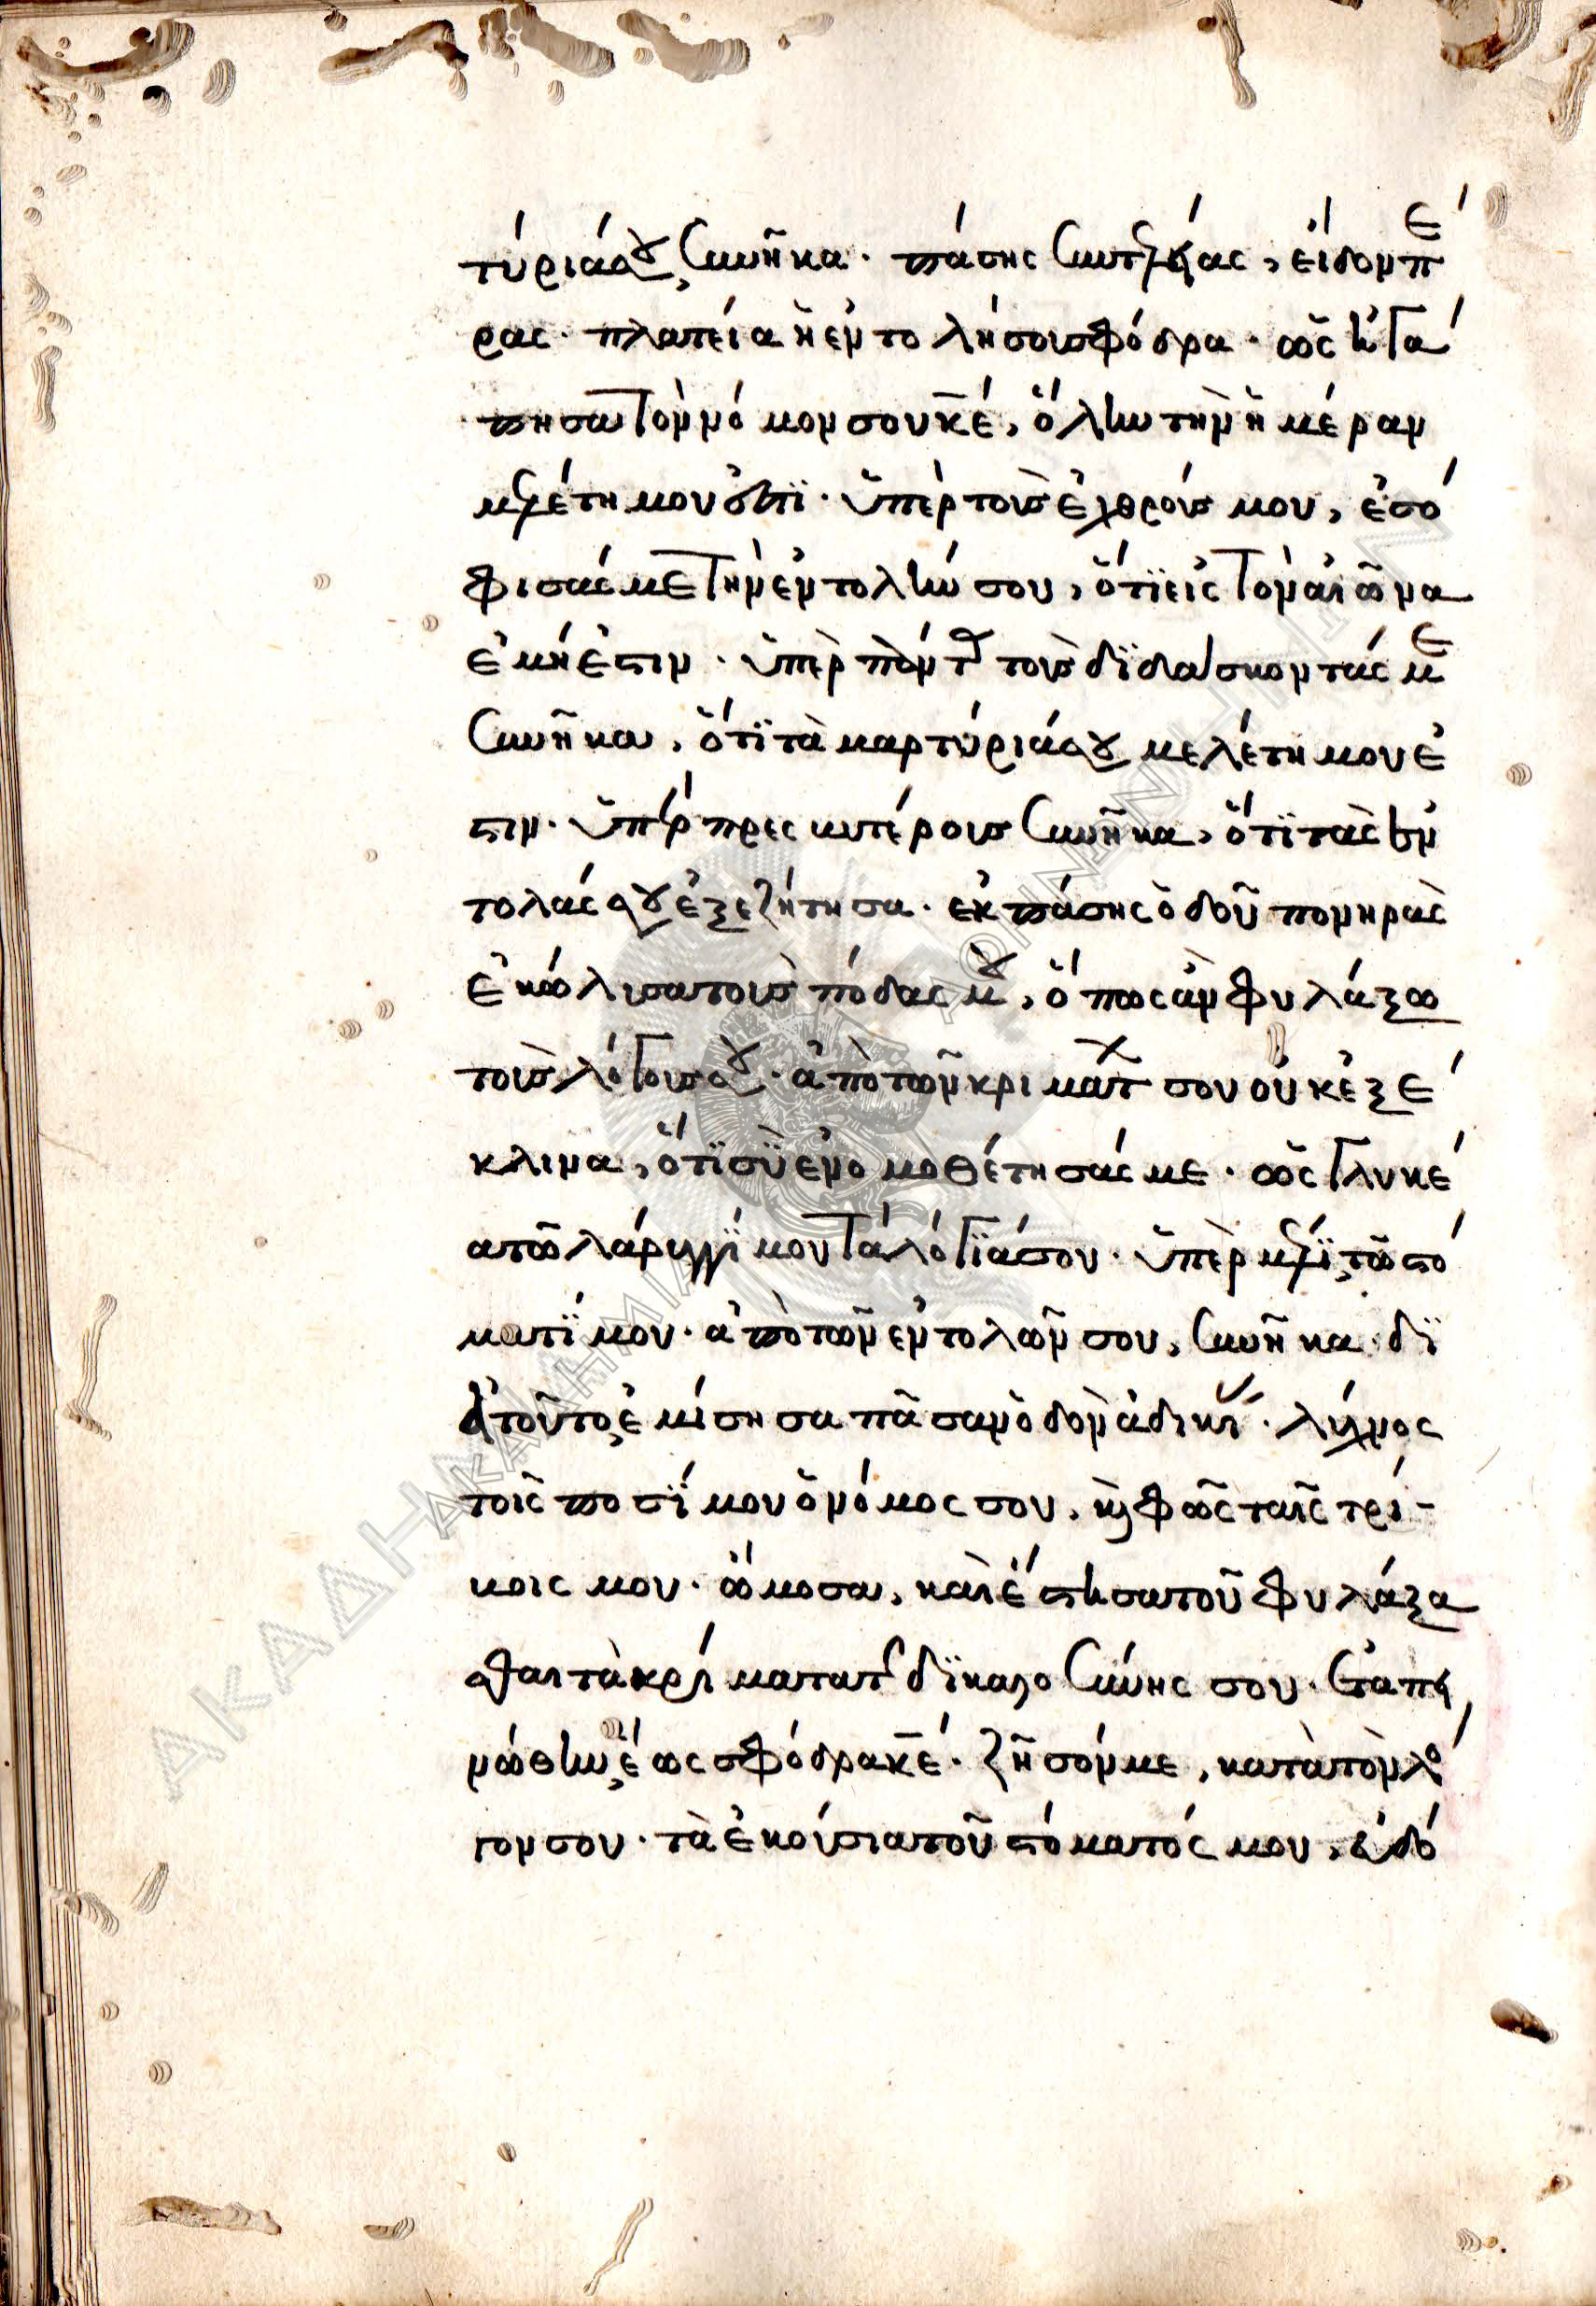 τύριά σου συνῆκα· πάσης συντελείας, εἶδον πέ
ρας· πλατεῖα ἡ ἐντολή σου σφόδρα· ὡς ἠγά
πησα τὸν νόμον σου κ̅ε̅, ὅλην τὴν ἡμέραν
μελέτη μου ἐστὶ· ὑπὲρ τοὺς ἐχθρούς μου, ἐσό
φισάς με τὴν ἐντολήν σου, ὅτι εἰς τὸν αἰῶνα
ἐμή ἐστιν· ὑπὲρ πάντας τοὺς διδάσκοντάς με
συνῆκα, ὅτι τὰ μαρτύριά σου μελέτη μου ἐ
στιν· ὑπὲρ πρεσβυτέρους συνῆκα, ὅτι τὰς ἐν
τολάς σου ἐξεζήτησα· ἐκ πάσης ὁδοῦ πονηρᾶς
ἐκώλυσα τοὺς πόδας μου, ὅπως ἂν φυλάξω
τοὺς λόγους σου· ἀπὸ τῶν κριμάτων σου οὐκ ἐξέ
κλινα, ὅτι σὺ ἐνομοθέτησάς με· ὡς γλυκέ
α τῶ λάρυγγί μου τὰ λόγιά σου· ὑπὲρ μέλι τῶ στό
ματί μου· ἀπὸ τῶν ἐντολῶν σου, συνῆκα· δι
ὰ τοῦτο ἐμίσησα πᾶσαν ὁδὸν ἀδικίας· λύχνος
τοῖς ποσί μου ὁ νόμος σου, καὶ φῶς ταῖς τρί-
βοις μου· ὤμοσα, καὶ ἔστησα τοῦ φυλάξα
σθαι τὰ κρίματα τῆς δικαιοσύνης σου· ἐταπει
νώθην ἕως σφόδρα κ̅ε̅· ζῆσόν με, κατὰ τὸν λό
γον σου· τὰ ἑκούσια τοῦ στόματός μου, εὐδό
ΑΚΑΔΗΜΙΑ ΑΘΗΝΩΝ